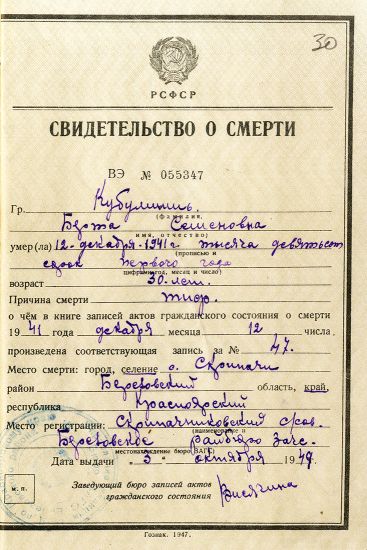 30
РСФСР
СВИДЕТЕЛЬСТВО О СМЕРТИ
ВЭ № 055347
Гр. Кубулинь
(фамилия,
Берта Семеновна
имя, отчество)
умер(ла) 12-декабря-1941 г тысяча девятьсот
(прописью и
сорок первого года
цифрами год, месяц и число)
возраст 30 лет.
Причина смерти тиф.
о чём в книге записей актов гражданского состояния о смерти
1941 года декабря месяца 12 числа
произведена соответствующая запись за № 47.
Место смерти: город, селение о. Скрипачи
район Березовский область, край,
республика Красноярский
Место регистрации: Скрипачниковский с/сов.
(наименование и
Березовское райбюро Загс.
местонахождение бюро ЗАГС)
Дата выдачи 3 октября 1949.
М. П.
Заведующий бюро записей актов
гражданского состояния
Гознак. 1947.